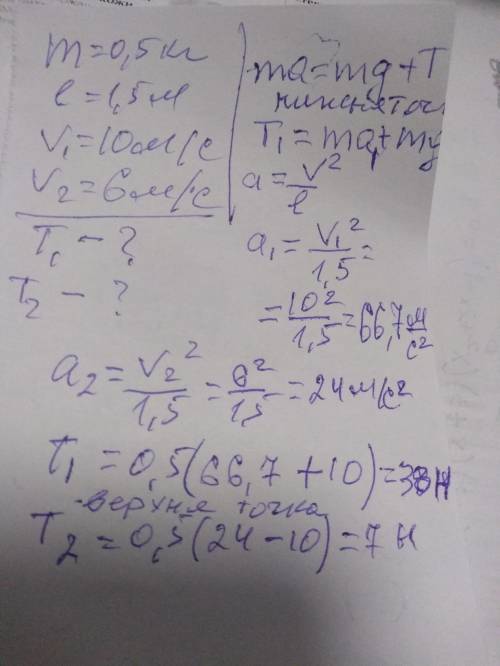 m = 0,5 кг
l = 1,5 м
V₁ = 10 м/с
V₂ = 6 м/с
T₁ – ?
T₂ – ?
ma = mg + T
нижняя точ
T₁ = ma₁ + mg
a = V²/l
a₁ = V₁²/1,5 =
= 10²/1,5 = 66,7 м/с²
a₂ = V₂²/1,5 = 6²/1,5 = 24 м/с²
T₁ = 0,5(66,7 + 10) = 38 Н
верхня точка
T₂ = 0,5(24 – 10) = 7 Н